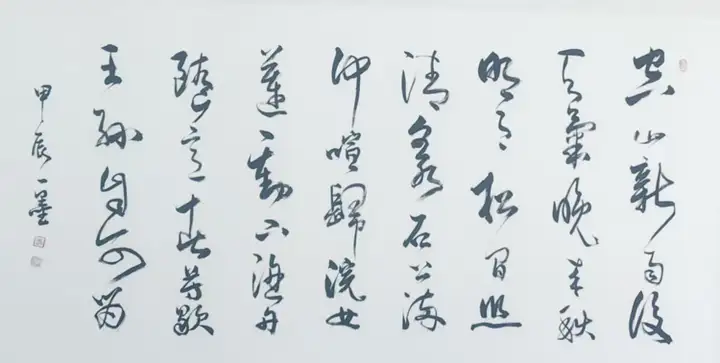 空山新雨後
天氣晚来秋
明月松間照
清泉石上流
竹喧歸浣女
蓮動下漁舟
隨意春芳歇
王孫自可留
甲辰一墨